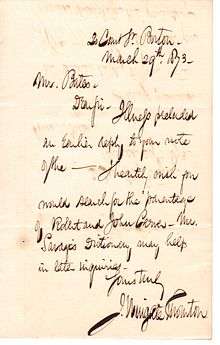 2 Court St. Boston -
March 29th. 1873 -
Mrs. Bates -
Dear
Illness precluded
an earlier reply to your note
of the — I heartily wish you
would search for the parentage
of Robert and John - Mr.
Savage's Dictionary may help
in late inquiries -
Yours truly
J. Wingate Thornton